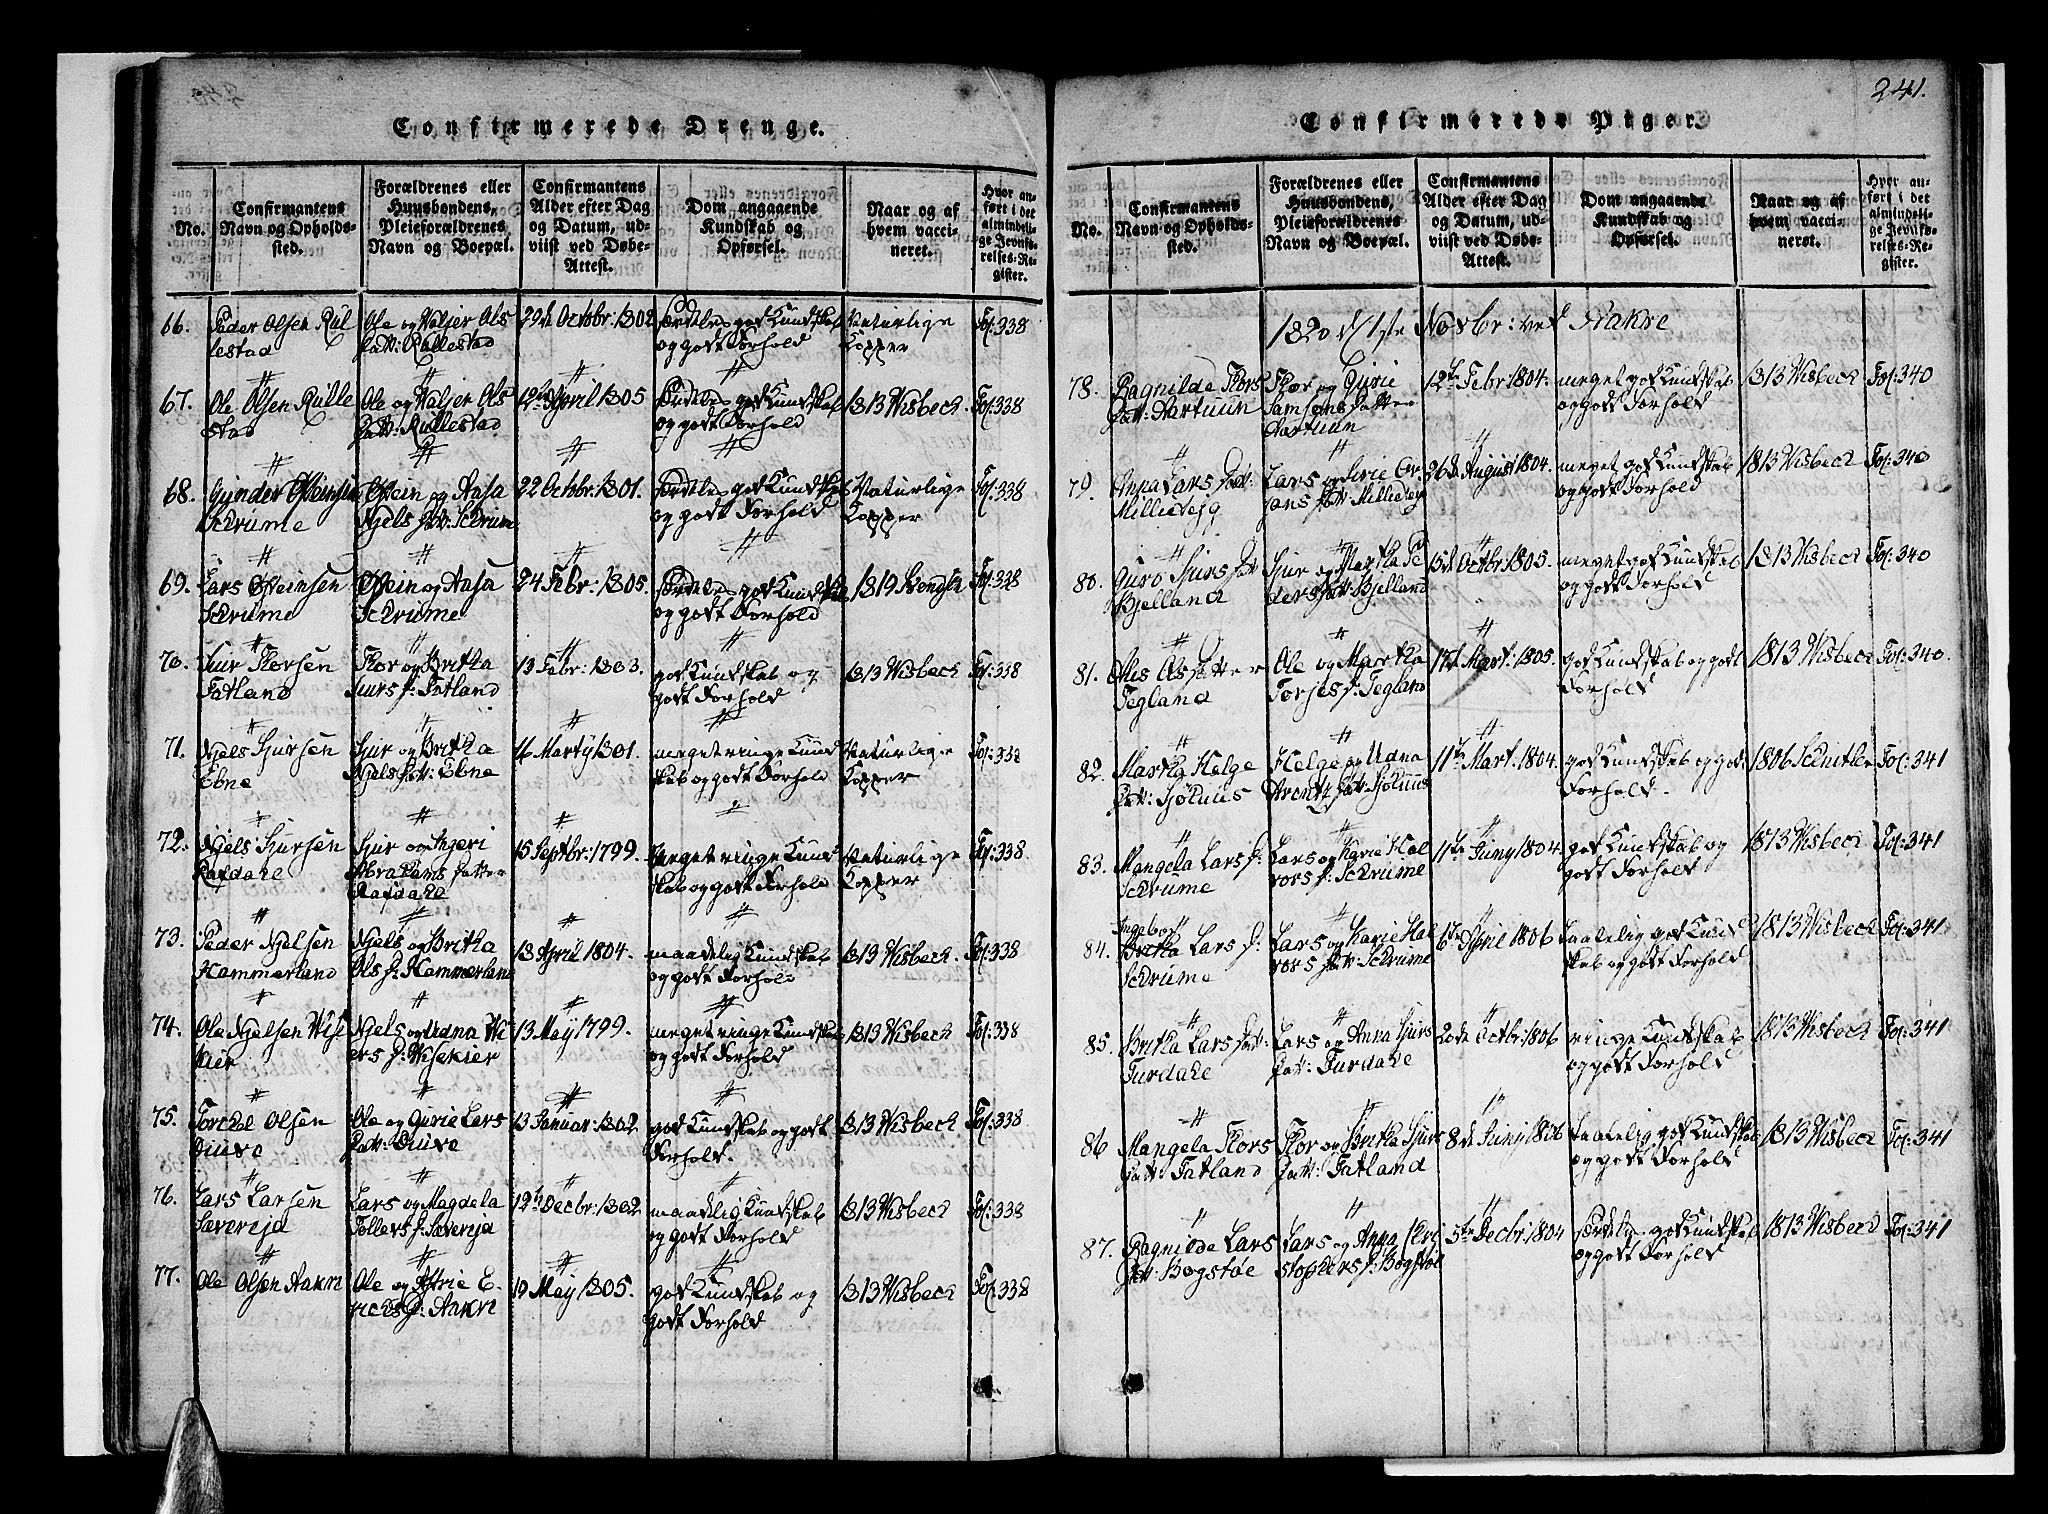 241.
Confirmerede Drenge.
No.
Confirmantens
Navn og Opholds-
sted.
Forældrenes eller
Huusbondens,
Pleieforældrenes
Navn og Boepæl.
Confirmantens
Alder efter Dag
og Datum, ud-
viist ved Døbe-
Attest.
Dom angaaende
Kundskab og
Opførsel.
Naar og af
hvem vacci-
neret.
Hvor an-
ført i det
almindeli-
ge Jevnfø-
relses-Re-
gister.
66.
Peder Olsen Rul
lestad
Ole og Valjer Ols
datt: Rullestad
22de Octobr: 1802
Særdeles god Kundskab
og godt Forhold
Naturlige
Kopper
Fol: 338
67.
Ole Olsen Rulle
stad
Ole og Valjer Ols
datt: Rullestad
12te April 1805
Særdeles god Kundskab
og godt Forhold
1813 Wisbech
Fol: 338
68.
Schrume
22 Octobr: 1801.
Særdeles god Kundskab
og godt Forhold
Naturlige
Kopper
Fol: 338
69.
Lars Østeinsen
Schrume
Østein og Aasa
Schrume
24 Febr: 1805.
Særdeles god Kundskab
og godt Forhold
1819
Fol: 338
70.
Siur Thorsen
Fatland
Thor og Britha
Siurs d: Fatland
13 Febr: 1803.
god Kundskab og
godt Forhold
1813 Wisbech
Fol: 338
71.
Njels Sjursen
Ebne
Sjur og Britha
Njels datt: Ebne
16 Marty 1801.
meget ringe Kund
skab og godt Forhold
Naturlige
Kopper
Fol: 338
72.
Njels Sjursen
Rafdahe
Sjur og Ingeri
Abrahams datter
Rafdahe
15 Septbr: 1799.
meget ringe Kund
skab og godt Forhold
Naturlige
Kopper
Fol: 338
73.
Peder Njelsen
Hammerland
Njels og Britha
Ols d: Hammerland
13 April 1804.
maadelig Kundskab
og godt Forhold
1813 Wisbech
Fol: 338
74.
Ole Njelsen
Njels og Udna
13 May 1799.
meget ringe Kundskab
og godt Forhold
1813 Wisbech
Fol: 338
75.
Torchel Olsen
Diuve
Ole og Gurie Lars
datt: Diuve
13 Januar: 1802
god Kundskab og godt
Forhold.
1813 Wisbech
Fol: 338
76.
Lars Larsen
Lars og Magdela
12te Decbr: 1802.
maadelig Kundskab
og godt Forhold
1813 Wisbech
Fol: 338
77.
Ole Olsen Aakre
Ole og Astrie E-
richs d: Aakre
19 May 1805.
god Kundskab og
godt Forhold
1813 Wisbech
Fol: 338
Confirmerede Piger.
No.
Confirmantens
Navn og Opholds-
sted.
Forældrenes eller
Huusbondens,
Pleieforældrenes
Navn og Boepæl.
Confirmantens
Alder efter Dag
og Datum, ud-
viist ved Døbe-
Attest.
Dom angaaende
Kundskab og
Opførsel.
Naar og af
hvem vacci-
neret.
Hvor an-
ført i det
almindeli-
ge Jevnfø-
relses-Re-
gister.
1820 d 1ste Novbr: ved Aakre
78.
Ragnilde Thors
datt: Hartuun
Thor og Gurie
Samsons datter
Hartuun
12te Febr: 1804.
meget god Kundskab
og godt Forhold
1813 Wisbech
Fol: 340
79.
Anna Lars datt:
Lars og Sirie
26de August 1804.
meget god Kundskab
og godt Forhold
1813 Wisbech
Fol: 340
80.
Guro Sjurs datt
Bjelland
Sjur og Martha Pe
ders datt: Bjelland
15de Octbr: 1805.
meget god Kundskab
og godt Forhold
1813 Wisbech
Fol: 340
81.
Tegland
Ole og Martha
Torjes d: Tegland
17de Mart: 1805.
god Kundskab og godt
Forhold
1813 Wisbech
Fol: 340
82.
Martha Helge
datt: Sjøhuus
Helge og Udna
Sjøhuus
11te Mart: 1804.
god Kundskab og godt
Forhold.
1806
Fol: 341
83.
Mangela Lars d:
Schrume
Lars og Karie Hal
vors d: Schrume
11te Juny 1804.
god Kundskab og
godt Forhold
1813 Wisbech
Fol: 341
84.
Ingebor
Britha Lars d:
Schrume
Lars og Karie Hal
vors datt: Schrume
6te April 1806
taalelig god Kund
skab og godt Forhold
1813 Wisbech
Fol: 341
85.
Britha Lars datt:
Furdahe
Lars og Anna Sjurs
datt: Furdahe
20de Octbr: 1806
ringe Kundskab
og godt Forhold
1813 Wisbech
Fol: 341
86
Mangela Thors
datt: Fatland
Thor og Britha Sjurs
datt: Fatland
8de Juny 1806
taalelig god Kundskab
og godt Forhold
1813 Wisbech
Fol: 341
87.
Ragnilde Lars
datt: Bogstøe
Lars og Anna Kri
stophers d: Bogstøe
5te Decbr: 1804
særdelig god Kundskab
og godt Forhold
1813 Wisbech
Fol: 341